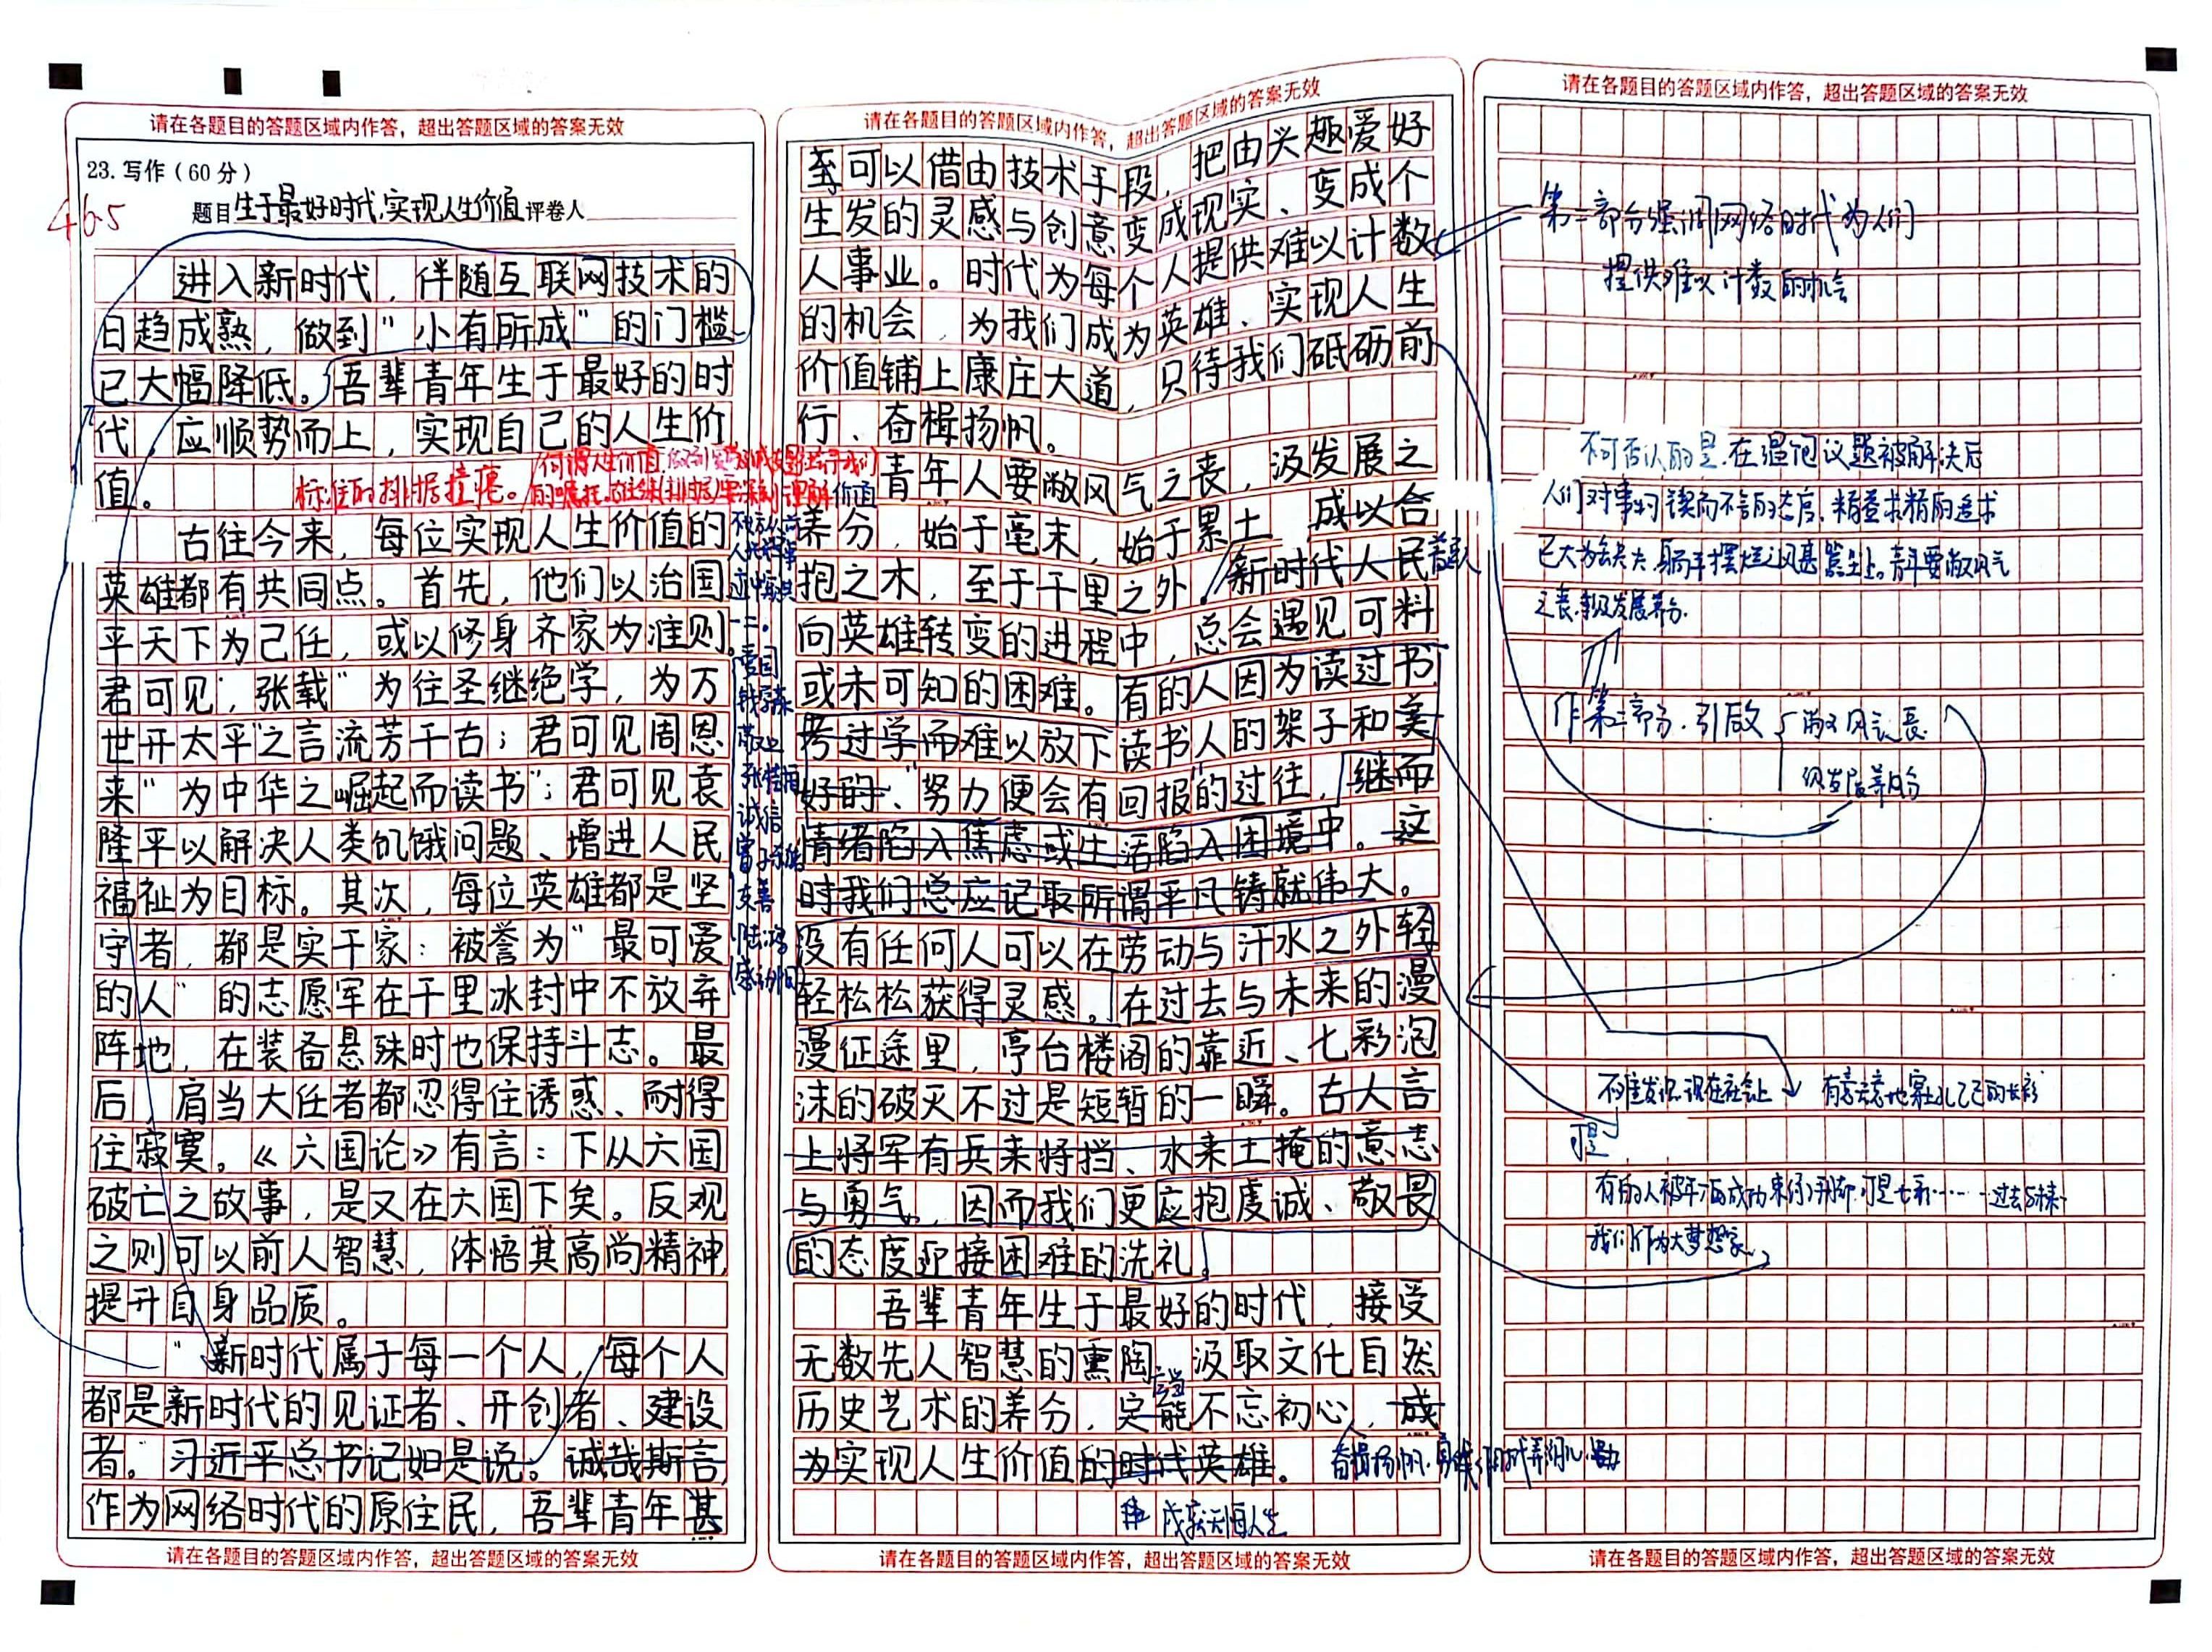 请在各题目的答题区域内作答，超出答题区域的答案无效
23.写作（60分）
465
题目生于最好时代,实现人生价值 评卷人
进入新时代，伴随互联网技术的
日趋成熟，做到"小有所成"的门槛
已大幅降低。吾辈青年生于最好的时
代，应顺势而上，实现自己的人生价
值。
古往今来，每位实现人生价值的
英雄都有共同点。首先，他们以治国
平天下为己任，或以修身齐家为准则。
君可见，张载"为往圣继绝学，为万
世开太平"之言流芳千古；君可见周恩
来"为中华之崛起而读书"；君可见袁
隆平以解决人类饥饿问题、增进人民
福祉为目标。其次，每位英雄都是坚
守者，都是实干家：被誉为"最可爱
的人"的志愿军在千里冰封中不放弃
阵地，在装备悬殊时也保持斗志。最
后，肩当大任者都忍得住诱惑、耐得
住寂寞。《六国论》有言：下从六国
破亡之故事，是又在六国下矣。反观
之则可以前人智慧，体悟其高尚精神，
提升自身品质。
"新时代属于每一个人，每个人
都是新时代的见证者、开创者、建设
者。"习近平总书记如是说。诚哉斯言，
作为网络时代的原住民，吾辈青年甚
请在各题目的答题区域内作答，超出答题区域的答案无效
请在各题目的答题区域内作答，超出答题区域的答案无效
至可以借由技术手段，把由兴趣爱好
生发的灵感与创意变成现实、变成个
人事业。时代为每个人提供难以计数
的机会，为我们成为英雄、实现人生
价值铺上康庄大道，只待我们砥砺前
行、奋楫扬帆。
青年人要敝风气之丧，汲发展之
养分，始于毫末，始于累土，成以合
抱之木，至于千里之外。新时代人民
向英雄转变的进程中，总会遇见可料
或未可知的困难。有的人因为读过书
考过学而难以放下读书人的架子和美
好的、"努力便会有回报"的过往，继而
情绪陷入焦虑或生活陷入困境中。这
时我们总应记取所谓平凡铸就伟大。
没有任何人可以在劳动与汗水之外轻
轻松松获得灵感。在过去与未来的漫
漫征途里，亭台楼阁的靠近、七彩泡
沫的破灭不过是短暂的一瞬。古人言
上将军有兵来将挡、水来土掩的意志
与勇气，因而我们更应抱虔诚、敬畏
的态度迎接困难的洗礼。
吾辈青年生于最好的时代，接受
无数先人智慧的熏陶，汲取文化自然
历史艺术的养分，定能不忘初心，成
为实现人生价值的时代英雄。
请在各题目的答题区域内作答，超出答题区域的答案无效
请在各题目的答题区域内作答，超出答题区域的答案无效
第二部分强调网络时代为人们
提供难以计数的机会
不可否认的是,在温饱议题被解决后
人们对事物锲而不舍的态度、精益求精的追求
之丧,汲发展养分.
作第三部分.引启
敝风气之丧
汲发展养分
不难发识,现在社会上
可是
请在各题目的答题区域内作答，超出答题区域的答案无效